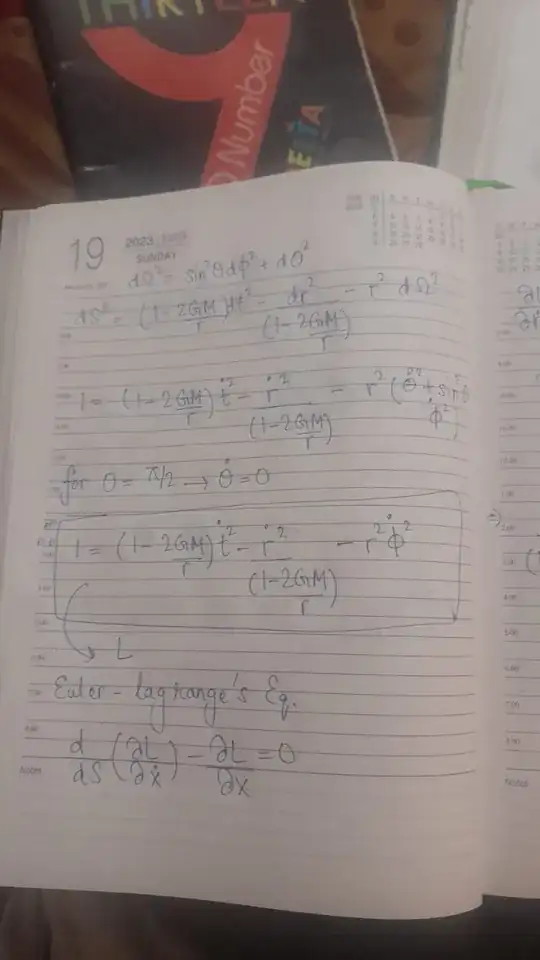 THIRTEEN
9
Number
19
2023
SUNDAY
dΩ² = sin²θdϕ² + dθ²
dS² = (1-2GM/r)dt² - dr²/(1-2GM/r) - r² dΩ²
1 = (1-2GM/r)ṫ² - ṙ²/(1-2GM/r) - r²(θ̇² + sin²θ ϕ̇²)
for θ = π/2 → θ̇ = 0
1 = (1-2GM/r)ṫ² - ṙ²/(1-2GM/r) - r²ϕ̇²
→ L
Euler - Lagrange's Eq.
d/dS (∂L/∂ẋ) - ∂L/∂x = 0
Notes